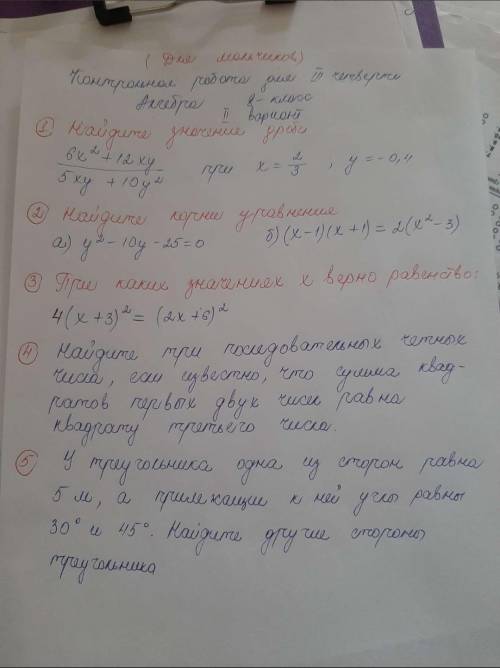 (Для мальчиков)
Контрольная работа для III четверти
Алгебра 8-класс
II вариант
① Найдите значение дроби
6x²+12xy / 5xy+10y² при x=2/3, y=-0,4
② Найдите корни уравнения
а) y²-10y-25=0 б) (x-1)(x+1)=2(x²-3)
③ При каких значениях x верно равенство:
4(x+3)²=(2x+6)²
④ Найдите три последовательных четных
числа, если известно, что сумма квад-
ратов первых двух чисел равна
квадрату третьего числа.
⑤ У треугольника одна из сторон равна
5 м, а прилежащие к ней углы равны
30° и 45°. Найдите другие стороны
треугольника